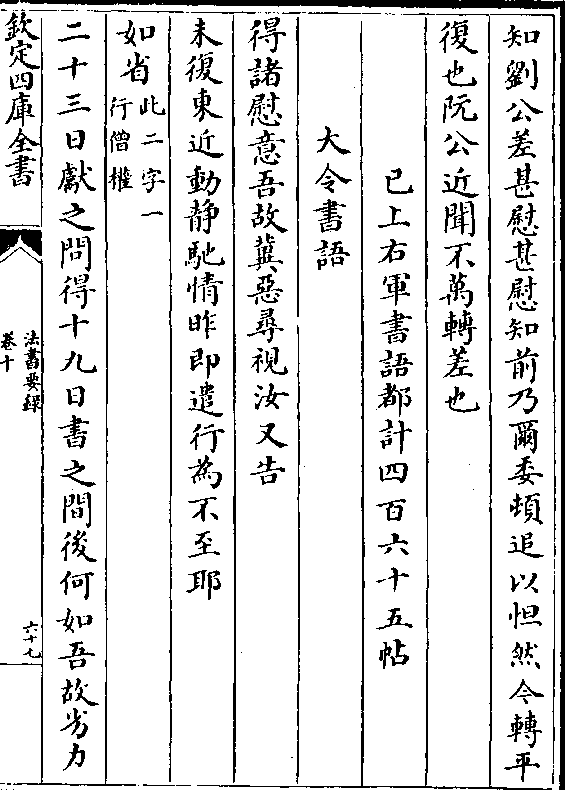 知劉公差甚慰甚慰知前乃爾委頓追以怛然今轉平
復也阮公近聞不萬轉差也
已上右軍書語都計四百六十五帖
大令書語
得諸慰意吾故冀惡尋視汝又告
未復東近動靜馳情昨即遣行為不至耶
如省此二字一行僧權
二十三日獻之問得十九日書之間後何如吾故劣力
欽定四庫全書
法書要錄
卷十
六十九